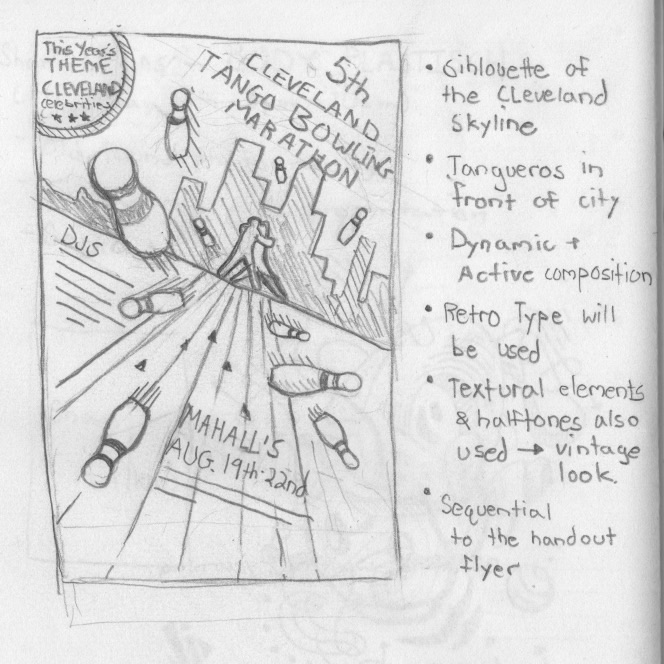 This Year's
THEME
CLEVELAND
celebrities
5th
CLEVELAND
TANGO BOWLING
MARATHON
DJS
MAHALL'S
AUG. 19th-22nd
• Sihlouette of
the Cleveland
Skyline
• Tangueros in
front of city
• Dynamic +
Active composition
• Retro Type will
be used
• Textural elements
& halftones also
used → vintage
look.
• Sequential
to the handout
flyer.